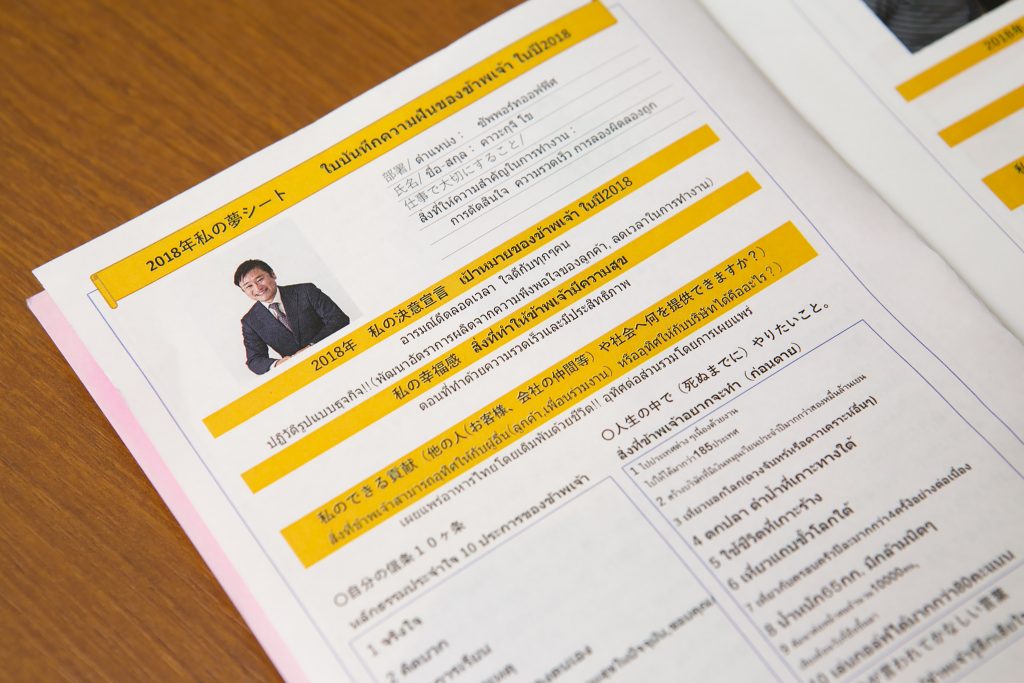 2018年私の夢シート ใบบันทึกความฝันของข้าพเจ้า ในปี2018
部署/ ตำแหน่ง : ซัพพอร์ทออฟฟิศ
氏名/ ชื่อ-สกุล : คาวะกุจิ โย
仕事で大切にすること/
สิ่งที่ให้ความสำคัญในการทำงาน :
การตัดสินใจ ความรวดเร็ว การลองผิดลองถูก
2018年 私の決意宣言 เป้าหมายของข้าพเจ้า ในปี2018
อารมณ์ดีตลอดเวลา ใจดีกับทุกๆคน
ปฏิวัติรูปแบบธุรกิจ!!(พัฒนาอัตราการผลิตจากความพึงพอใจของลูกค้า, ลดเวลาในการทำงาน)
私の幸福感 สิ่งที่ทำให้ข้าพเจ้ามีความสุข
ตอนที่ทำด้วยความรวดเร็วและมีประสิทธิภาพ
私のできる貢献（他の人(お客様、会社の仲間等）や社会へ何を提供できますか？）
สิ่งที่ข้าพเจ้าสามารถอุทิศให้กับผู้อื่น(ลูกค้า,เพื่อนร่วมงาน) หรืออุทิศให้กับบริษัทได้คืออะไร?)
เผยแพร่อาหารไทยโดยเดิมพันด้วยชีวิต!! อุทิศต่อส่วนรวมโดยการเผยแพร่
〇自分の信条１０ヶ条
หลักธรรมประจำใจ 10 ประการของข้าพเจ้า
1 จริงใจ
2 คิดบวก
〇人生の中で（死ぬまでに）やりたいこと。
สิ่งที่ข้าพเจ้าอยากจะทำ (ก่อนตาย)
1 ไปประเทศต่าง ๆเนื่องด้วยงาน
ไปให้ได้มากกว่า185ประเทศ
3 เที่ยวนอกโลก(ดวงจันทร์หรือดาวเคราะห์อื่นๆ)
4 ตกปลา ดำน้ำที่เกาะทางใต้
5 ใช้ชีวิตที่เกาะร้าง
6 เที่ยวแถบขั้วโลกใต้
7 เที่ยวกับครอบครัวปีละมากกว่า4ครั้งอย่างต่อเนื่อง
8 น้ำหนัก65กก. มีกล้ามนิดๆ
10 เล่นกอล์ฟได้มากกว่า80คะแนน